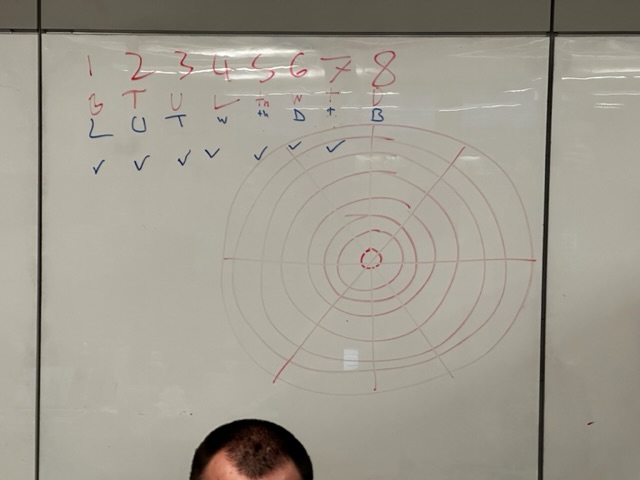 1 2 3 4 5 6 7 8
B T U L Th W T U
L U T W th D t B
✓ ✓ ✓ ✓ ✓ ✓ ✓